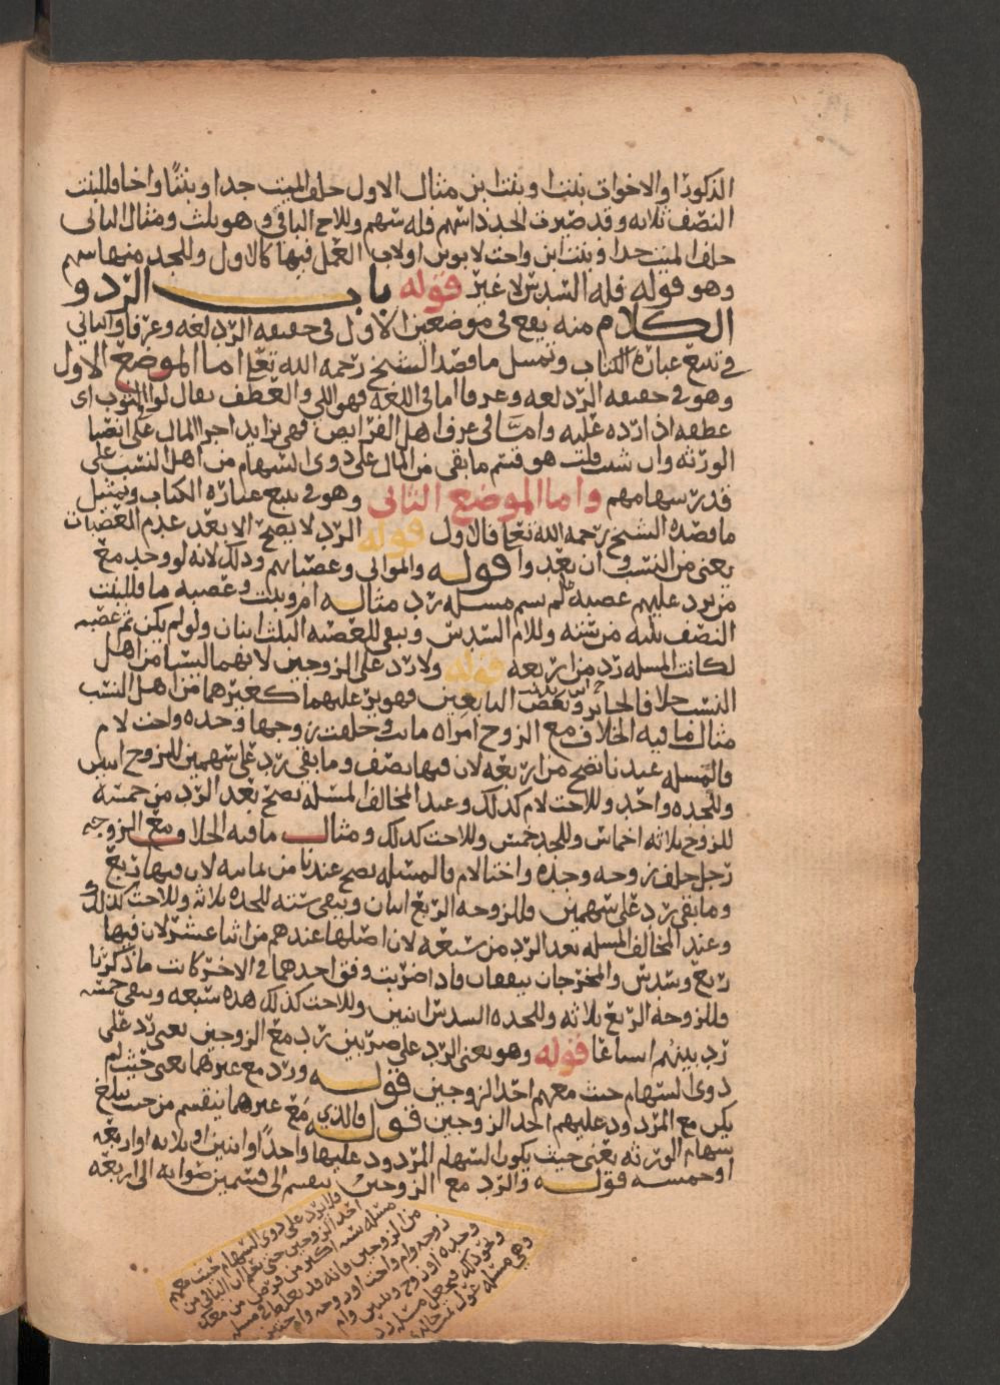 الذكورا والاخوات بنتا وبنت ابن مثال الاول خلف الميت جدا وبنتا واخا فللبنت
النصف ثلاثه وقد ضيرت للجد داسهم فله سهم وللاخ الباقي وهو ثلث ومثال الثاني
خلف الميت جدا وبنت ابن واخت لابوين اولاب العمل فيها كالاول وللجد منها سهم
وهو قوله فله السدس لا غير قوله باب الرد و
الكلام منه يقع في موضعين الاول في حقيقه الرد لغه وعرفا والثاني
في تتبع عبارة الكتاب وتمثيل ما قصد الشيخ رحمه الله تعا اما الموضع الاول
وهو في حقيقه الرد لغه وعرفا اما في اللغه فهو اللي والعطف يقال لوا الثوب اى
عطفه اذا رده عليه واما في عرف اهل الفرايض فهي تزايد اجزا المال على انصبا
الورثه وان شيت قلت هو قسم ما بقى من المال على ذوى السهام من اهل النسب على
قدر سهامهم واما الموضع الثاني وهو في تتبع عبارة الكتاب وتمثيل
ما قصده الشيخ رحمه الله تعا فالاول قوله الرد لا يصح الا بعد عدم العصبات
يعني من النسب وان بعدوا قوله والموالي وعصباتهم وذلك لانه لو وجد مع
من يرد عليهم عصبه لم يسم مسله رد مثاله ام وبنت وعصبه ما فللبنت
النصف ثلثه من سته وللام السدس وبقى للعصبه الثلث اثنان ولو لم يكن ثم عصبه
لكانت المسله رد من اربعه قوله ولا رد على الزوجين لانهما ليسا من اهل
النسب خلافا لجابر وبعض التابعين فهو يرد عليهما كغيرهما من اهل النسب
مثال ما فيه الخلاف مع الزوج امراه ماتت وخلفت زوجها وجده واخت لام
فالمسله عندنا تصح من اربعه لان فيها نصف وما بقى رد على سهمين للزوج اثنين
وللجده واحد وللاخت لام كذلك وعند المخالف المسله تصح بعد الرد من خمسه
للزوج ثلاثه اخماس وللجد خمس وللاخت كذلك ومثال ما فيه الخلاف مع الزوجه
رجل خلف زوجه وجده واختا لام فالمسله تصح عندنا من ثمانيه لان فيها ربع
وما بقى رد على سهمين فللزوجه الربع اثنان وبقى سته للجده ثلاثه وللاخت كذلك
وعند المخالف المسله بعد الرد من سبعه لان اصلها عندهم من اثنا عشر لان فيها
ربع وسدس والمخرجان يتفقان فاذا ضربت وفق احدهما في الاخر كانت ما ذكرنا
فللزوجه الربع ثلاثه وللجده السدس اثنين وللاخت كذلك هذه سبعه وبقى خمسه
رد بينهم اسباعا قوله وهو يعنى الرد على ضربين رد مع الزوجين يعنى رد على
ذوى السهام حيث معهم احد الزوجين قوله ورد مع غيرها يعنى حيث لم
يكن مع المردود عليهم احد الزوجين قوله فالذي مع غيرهما ينقسم من حيث تبلغ
سهام الورثه يعنى حيث يكون السهام المردود عليها واحدا او اثنين او ثلاثه او اربعه
او خمسه قوله والرد مع الزوجين ينقسم الى قسمين ضوابه الى اربعه
فلا يرد على ذوي السهام حيث معهم
احد الزوجين حتى تعلم ان الباقي من
مسله اكثر من فرض من معك
من الزوجين فانه قد يغلط في مسله
زوجه وام واخت او زوجه وام
وجده او زوج وبنتين وام
ونحو ذلك فيجعل مسله رد
وهي مسله عول